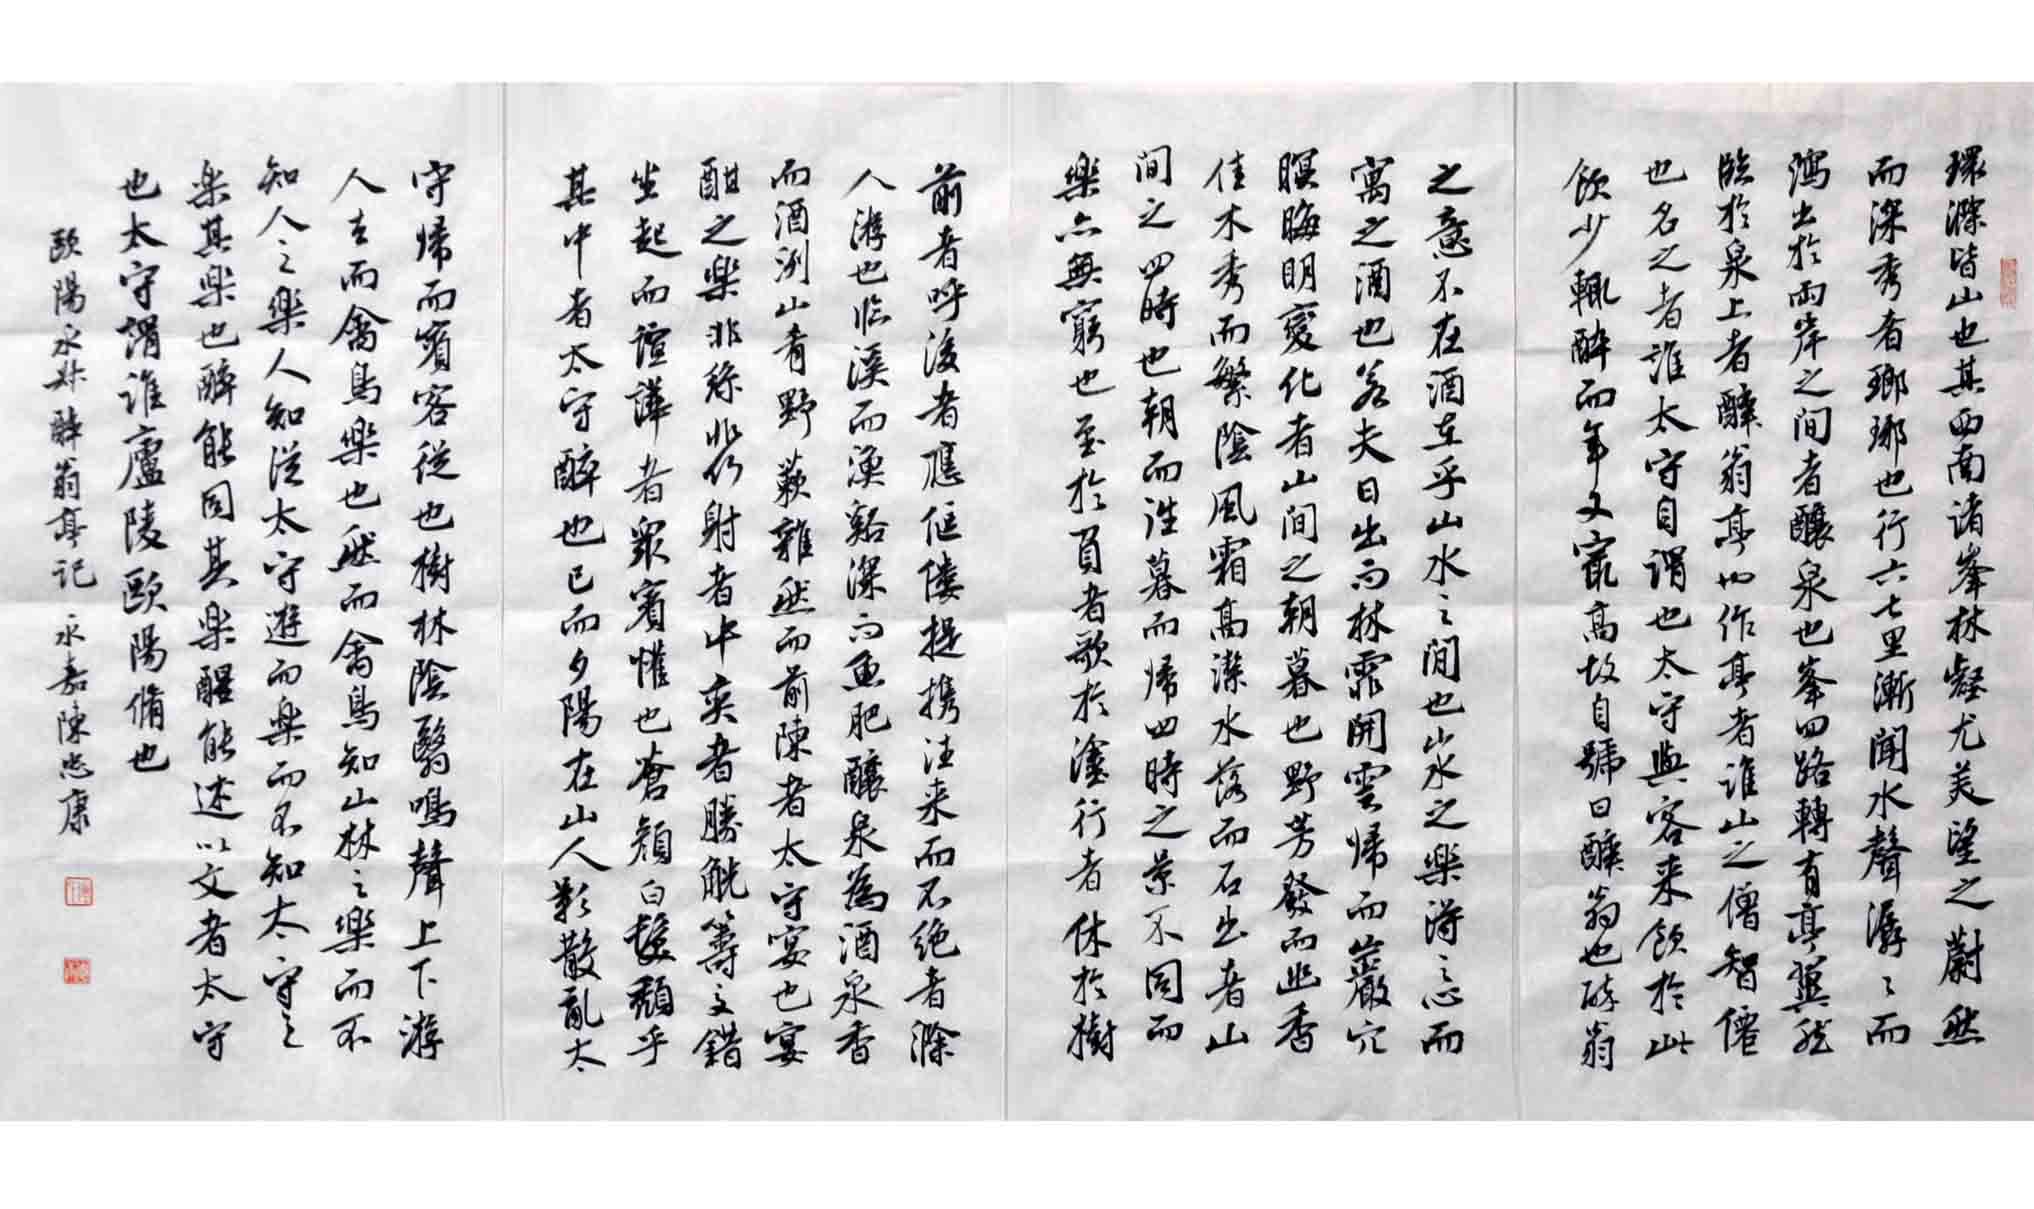 環滁皆山也其西南诸峯林壑尤美望之蔚然
而深秀者瑯琊也行六七里漸闻水聲潺々而
瀉出於兩岸之间者釀泉也峯回路轉有亭翼然
臨於泉上者醉翁亭也作亭者谁山之僧智僊
也名之者谁太守自谓也太守與客来飲於此
飲少輒醉而年又最高故自號曰醉翁也醉翁
之意不在酒在乎山水之间也山水之樂得之心而
寓之酒也若夫日出而林霏開雲帰而巖穴
暝晦明變化者山间之朝暮也野芳發而幽香
佳木秀而繁陰風霜高潔水落而石出者山
间之四時也朝而往暮而帰四時之景不同而
樂亦無窮也至於負者歌於塗行者休於樹
前者呼後者應傴僂提携往来而不绝者滁
人游也临溪而漁谿深而魚肥釀泉為酒泉香
而酒洌山肴野蔌雜然而前陳者太守宴也宴
酣之樂非絲非竹射者中奕者勝觥籌交錯
坐起而諠譁者眾賓懽也蒼顔白髮頹乎
其中者太守醉也已而夕陽在山人影散亂太
守帰而賓客從也樹林陰翳鳴聲上下游
人去而禽鳥樂也然而禽鳥知山林之樂而不
知人之樂人知從太守遊而樂而不知太守之
樂其樂也醉能同其樂醒能述以文者太守
也太守谓谁廬陵歐陽脩也
歐陽永叔醉翁亭记 永嘉陳忠康